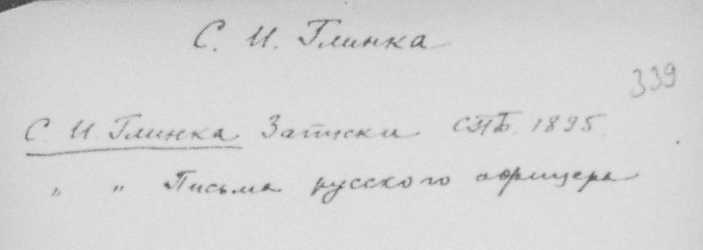 С. И. Глинка
339
С. И. Глинка Записки СПБ. 1895.
" " Письма русского офицера